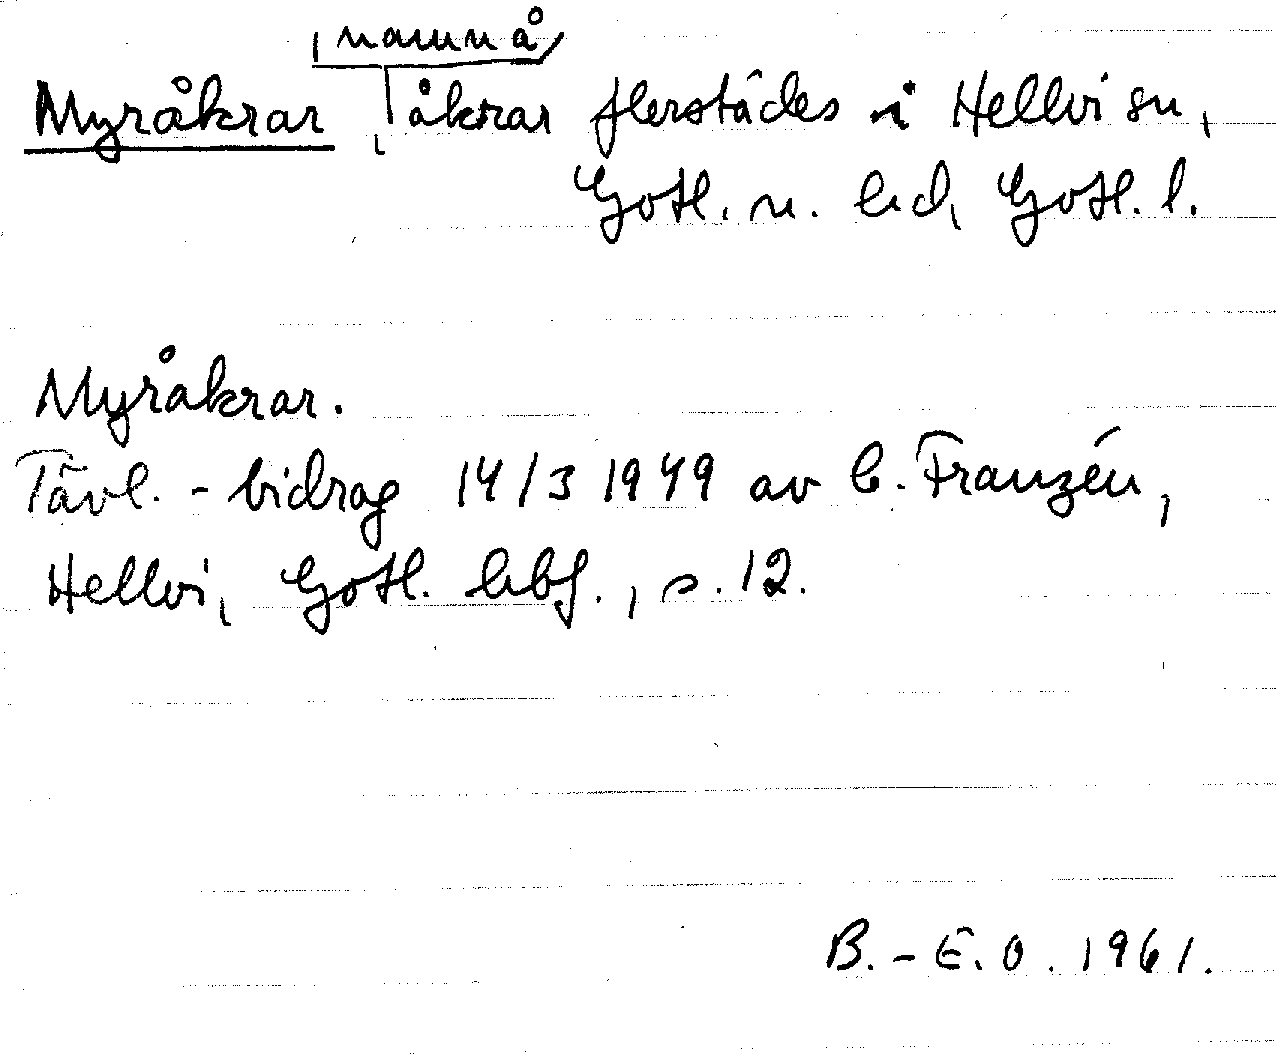 , namn å
Myråkrar, åkrar flerstädes i Hellvi sn,
Gotl. n. hd, Gotl. l.
Myråkrar.
Tävl.-bidrag 14/3 1949 av C. Franzén,
Hellvi, Gotl. hbf., s. 12.
B.-E.O. 1961.